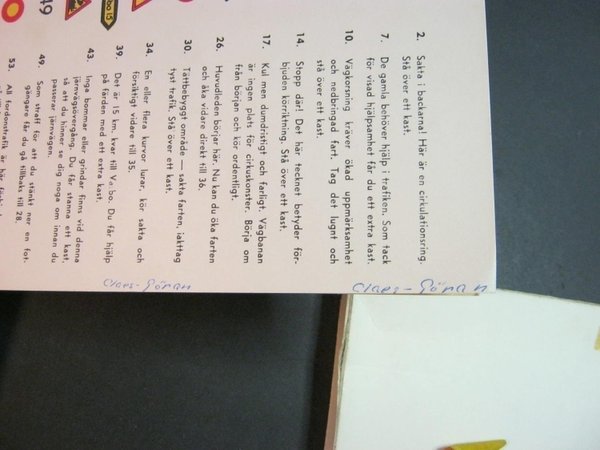 2. Sakta i backarna! Här är en cirkulationsring.
Stå över ett kast.
7. De gamla behöver hjälp i trafiken. Som tack
för visad hjälpsamhet får du ett extra kast.
10. Vägkorsning kräver ökad uppmärksamhet
och nedbringad fart. Tag det lugnt och
stå över ett kast.
14. Stopp där! Det här tecknet betyder för-
bjuden körriktning. Stå över ett kast.
17. Kul men dumdristigt och farligt. Vägbanan
är ingen plats för cirkuskonster. Börja om
från början och kör ordentligt.
26. Huvudleden börjar här. Nu kan du öka farten
och åka vidare direkt till 36.
30. Tättbebyggt område — sakta farten, iakttag
tyst trafik. Stå över ett kast.
34. En eller flera kurvor lurar, kör sakta och
försiktigt vidare till 35.
39. Det är 15 km. kvar till Vabo. Du får hjälp
på färden med ett extra kast.
43. Inga bommar eller grindar finns vid denna
järnvägsövergång. Du får stanna ett kast
så att du hinner se dig noga om innan du
passerar järnvägen.
49. Som straff för att du stänkt ner en fot-
gängare får du gå tillbaks till 28.
53. All fordonstrafik är här
49
bo 15
Claes-Göran
Claes-Göran